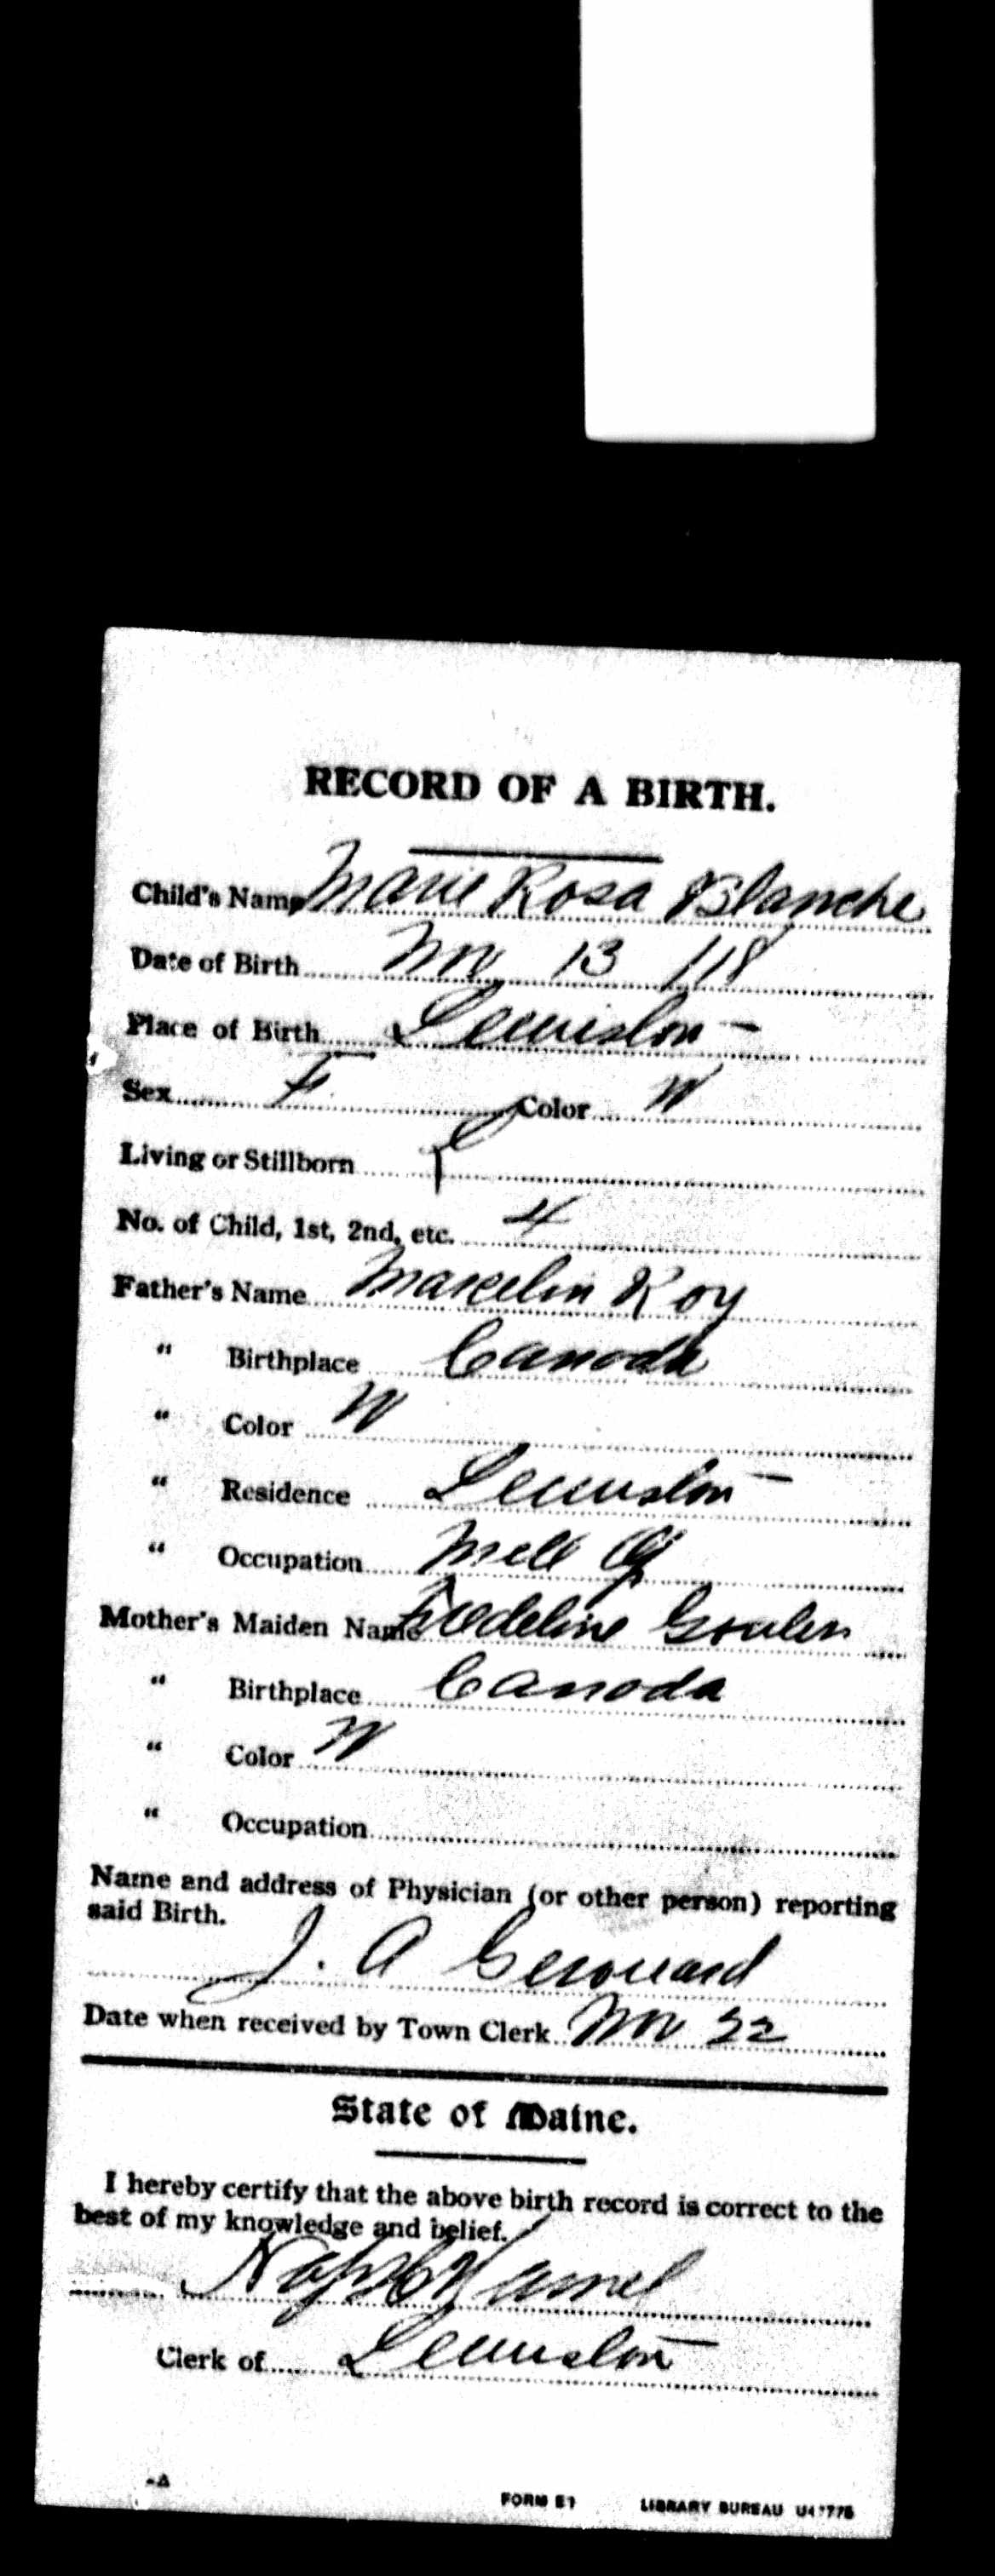 RECORD OF A BIRTH.
Child's Name Marie Rosa Blanche
Date of Birth Nov 13 /18
Place of Birth Lewiston
Sex F Color W
Living or Stillborn L
No. of Child, 1st, 2nd, etc. 4
Father's Name Marcelin Roy
" Birthplace Canada
" Color W
" Residence Lewiston
" Occupation Mill Op
Mother's Maiden Name Goulin
" Birthplace Canada
" Color W
" Occupation
Name and address of Physician (or other person) reporting
said Birth.
J. A Girouard
Date when received by Town Clerk Nov 22
State of Maine.
I hereby certify that the above birth record is correct to the
best of my knowledge and belief.
Hamel
Clerk of Lewiston
FORM E1 LIBRARY BUREAU